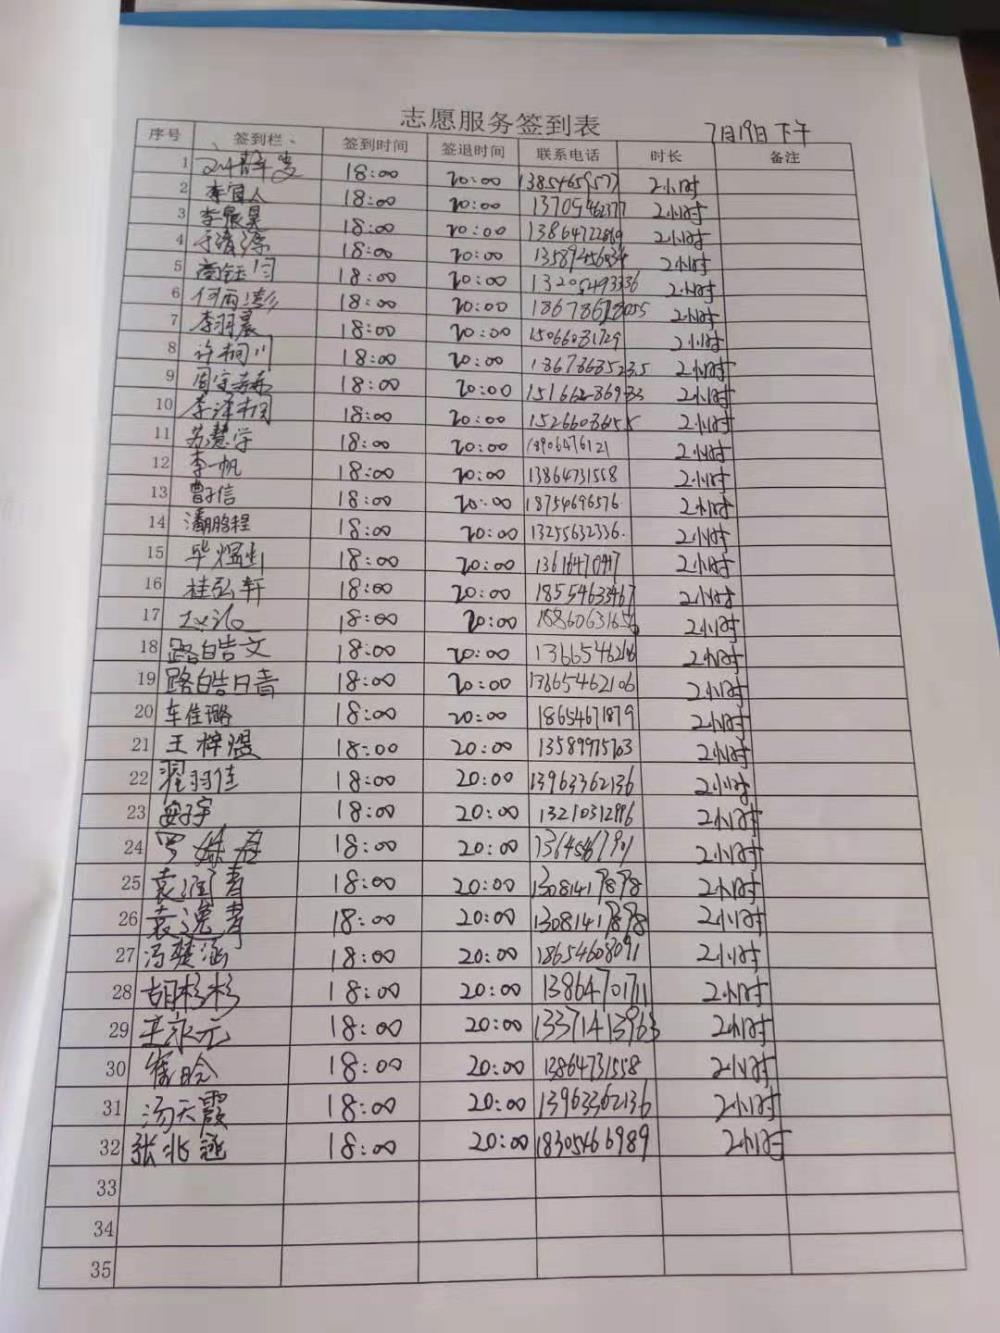 志愿服务签到表
7月19日下午
序号 签到栏 签到时间 签退时间 联系电话 时长 备注
1 18:00 20:00 2小时
2 李宜人 18:00 20:00 13705462377 2小时
3 李晨昊 18:00 20:00 2小时
4 18:00 20:00 2小时
5 18:00 20:00 13205493336 2小时
6 何雨澎 18:00 20:00 2小时
7 李羽晨 18:00 20:00 15066081729 2小时
8 许桐川 18:00 20:00 18678685235 2小时
9 18:00 20:00 2小时
10 李泽桐 18:00 20:00 2小时
11 苏慧学 18:00 20:00 2小时
12 李一帆 18:00 20:00 13864731558 2小时
13 曹子信 18:00 20:00 18754696576 2小时
14 潘鹏程 18:00 20:00 13255632336. 2小时
15 18:00 20:00 2小时
16 桂弘轩 18:00 20:00 18554633467 2小时
17 18:00 20:00 18860631656 2小时
18 路皓文 18:00 20:00 2小时
19 路皓日音 18:00 20:00 13865462106 2小时
20 车佳璐 18:00 20:00 18654671879 2小时
21 王梓煜 18:00 20:00 13589975703 2小时
22 翟羽佳 18:00 20:00 13963362136 2小时
23 安子宇 18:00 20:00 13210312996 2小时
24 18:00 20:00 2小时
25 袁润青 18:00 20:00 13081417878 2小时
26 袁逸青 18:00 20:00 13081417878 2小时
27 冯楚涵 18:00 20:00 18654608091 2小时
28 胡杉杉 18:00 20:00 13864701711 2小时
29 王永元 18:00 20:00 13371413963 2小时
30 崔晗 18:00 20:00 13864731558 2小时
31 汤天霞 18:00 20:00 13963362136 2小时
32 张兆 18:00 20:00 18305466989 2小时
33
34
35